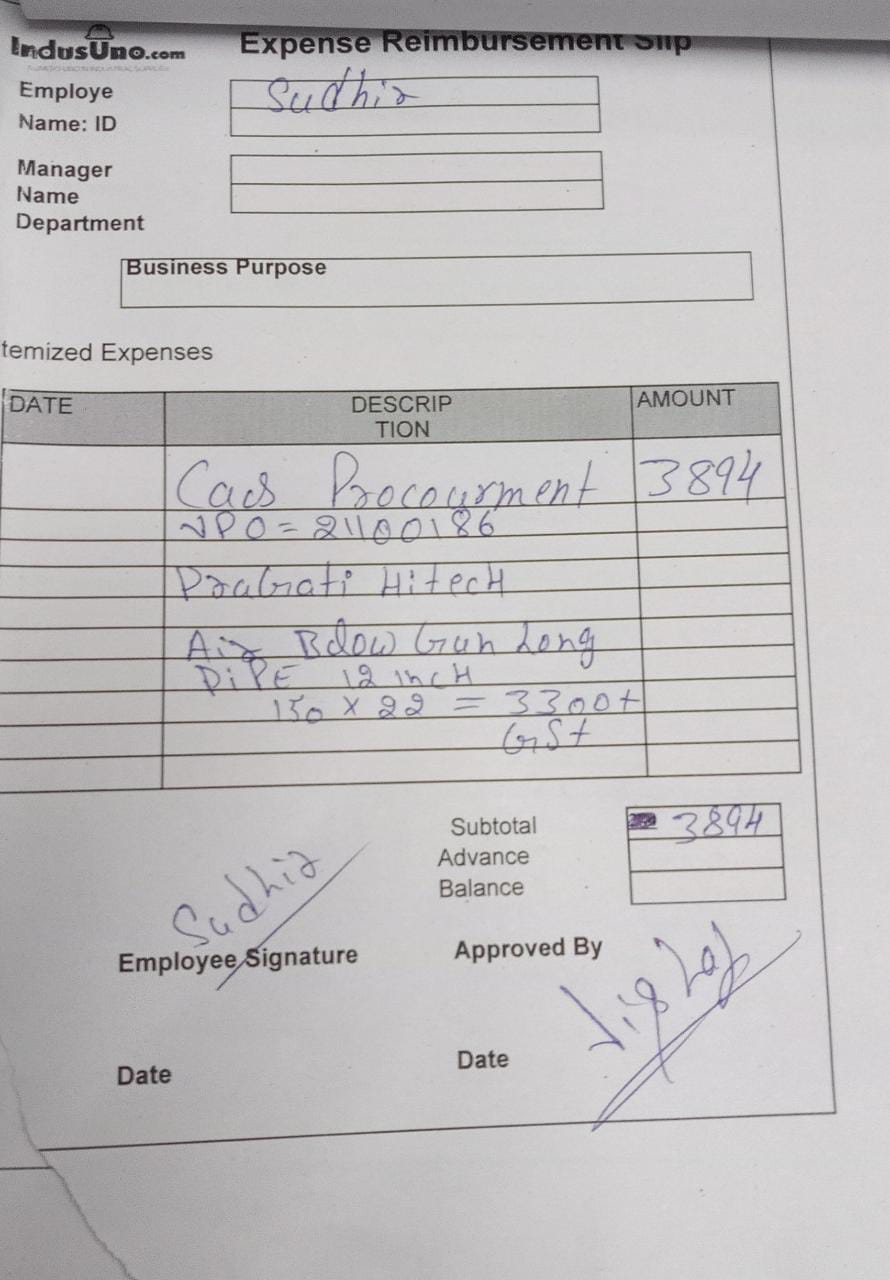 IndusUno.com
Expense Reimbursement Slip
Employe
Name: ID
Sudhir
Manager
Name
Department
Business Purpose
temized Expenses
DATE DESCRIP
TION AMOUNT
Procourment 3894
VPO = 21100186
Hitech
Air Bdow Gun Long
PiPE 12 incH
150 x 22 = 3300+
GSt
Subtotal 3894
Advance
Balance
Sudhir
Employee Signature
Approved By
Date
Date